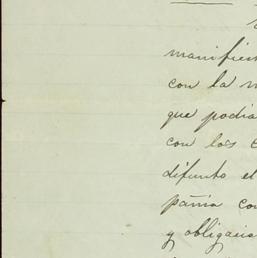 manifies
con la m
que podia
con los
difunto el
pañia co
y obligacio